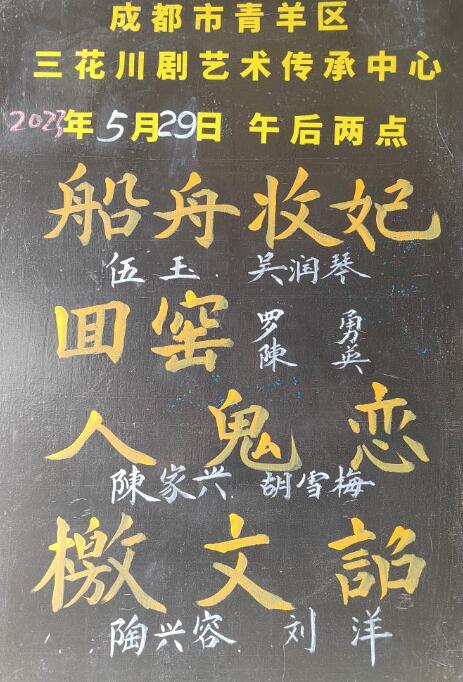 成都市青羊区
三花川剧艺术传承中心
2023年5月29日 午后两点
船舟妆妃
伍玉 吴润琴
囬窑
罗勇
陳英
人鬼恋
陳家兴 胡雪梅
檄文詔
陶兴容 刘洋